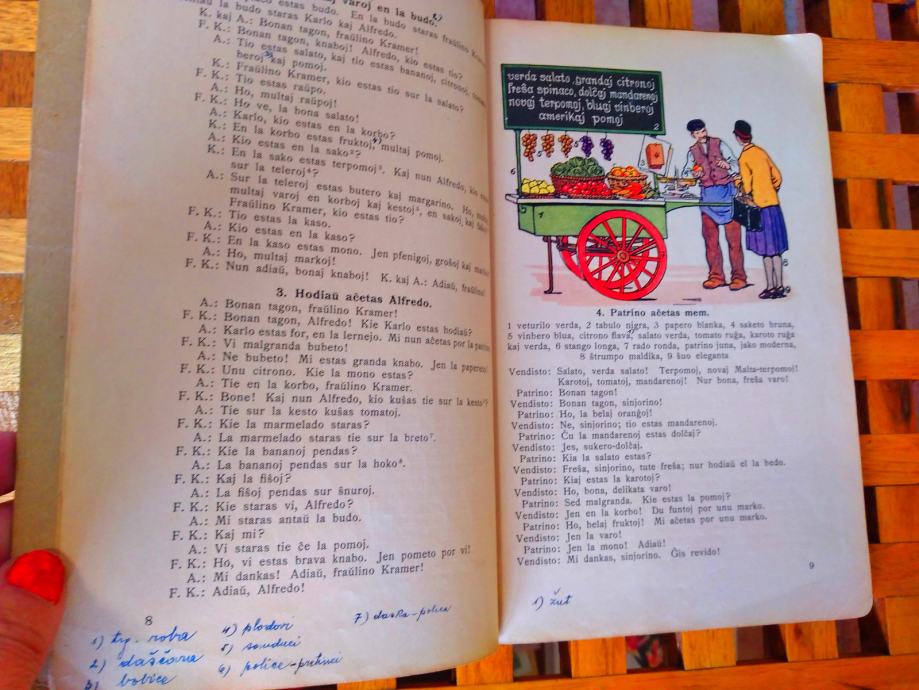 varoj en la budo.
estas budo. En la budo staras fraŭlino
la budo staras Karlo kaj Alfredo.
K. kaj A.: Bonan tagon, fraŭlino Kramer!
F. K.: Bonan tagon, knaboj! Alfredo, kio estas tio?
A.: Tio estas salato, kaj tio estas bananoj, citronoj,
beroj kaj pomoj.
K.: Fraŭlino Kramer, kio estas tio sur la salato?
F. K.: Tio estas raŭpo.
A.: Ho, multaj raŭpoj!
F. K.: Ho ve, la bona salato!
A.: Karlo, kio estas en la korbo?
K.: En la korbo estas fruktoj, multaj pomoj.
A.: Kio estas en la sako²?
K.: En la sako estas terpomoj³. Kaj nun Alfredo, kio
sur la teleroj⁴?
A.: Sur la teleroj estas butero kaj margarino. Ho,
multaj varoj en korboj kaj kestoj⁵, en sakoj kaj
Fraŭlino Kramer, kio estas tio?
F. K.: Tio estas la kaso.
A.: Kio estas en la kaso?
F. K.: En la kaso estas mono. Jen pfenigoj, groŝoj kaj
A.: Ho, multaj markoj!
F. K.: Nun adiaŭ, bonaj knaboj! K. kaj A.: Adiaŭ, fraŭlino!
3. Hodiaŭ aĉetas Alfredo.
A.: Bonan tagon, fraŭlino Kramer!
F. K.: Bonan tagon, Alfredo! Kie Karlo estas hodiaŭ?
A.: Karlo estas for, en la lernejo. Mi nun aĉetas por la
F. K.: Vi malgranda bubeto!
A.: Ne bubeto! Mi estas granda knabo. Jen la papereto!
F. K.: Unu citrono. Kie la mono estas?
A.: Tie en la korbo, fraŭlino Kramer.
F. K.: Bone! Kaj nun Alfredo, kio kuŝas tie sur la kesto?
A.: Tie sur la kesto kuŝas tomatoj.
F. K.: Kie la marmelado staras?
A.: La marmelado staras tie sur la breto⁷.
F. K.: Kie la bananoj pendas?
A.: La bananoj pendas sur la hoko⁸.
F. K.: Kaj la fiŝoj?
A.: La fiŝoj pendas sur ŝnuroj.
F. K.: Kie staras vi, Alfredo?
A.: Mi staras antaŭ la budo.
F. K.: Kaj mi?
A.: Vi staras tie ĉe la pomoj.
F. K.: Ho, vi estas brava knabo. Jen pometo por vi!
A.: Mi dankas! Adiaŭ, fraŭlino Kramer!
F. K.: Adiaŭ, Alfredo!
8
1) roba
2) daščara
3) bobice
4) plodovi
5) sanduci
6) police - pretinci
7) daska - polica
verda salato, grandaj citronoj
freŝa spinaco, dolĉaj mandarenoj
novaj terpomoj, bluaj vinberoj
amerikaj pomoj
4. Patrino aĉetas mem.
1 veturilo verda, 2 tabulo nigra, 3 papero blanka, 4 saketo bruna,
5 vinbero blua, citrono flava, salato verda, tomato ruĝa, karoto ruĝa
kaj verda, 6 stango longa, 7 rado ronda, patrino juna, jako moderna,
8 ŝtrumpo maldika, 9 ŝuo eleganta
Vendisto: Salato, verda salato! Terpomoj, novaj Malta-terpomoj!
Karotoj, tomatoj, mandarenoj! Nur bona, freŝa varo!
Patrino: Bonan tagon!
Vendisto: Bonan tagon, sinjorino!
Patrino: Ho, la belaj oranĝoj!
Vendisto: Ne, sinjorino; tio estas mandarenoj.
Patrino: Ĉu la mandarenoj estas dolĉaj?
Vendisto: Jes, sukero-dolĉaj.
Patrino: Kia la salato estas?
Vendisto: Freŝa, sinjorino, tute freŝa; nur hodiaŭ el la bedo.
Patrino: Kiaj estas la karotoj?
Vendisto: Ho, bona, delikata varo!
Patrino: Sed malgranda. Kie estas la pomoj?
Vendisto: Jen en la korbo! Du funtoj por unu marko.
Patrino: Ho, belaj fruktoj! Mi aĉetas por unu marko.
Vendisto: Jen la varo!
Patrino: Jen la mono! Adiaŭ!
Vendisto: Mi dankas, sinjorino. Ĝis revido!
9
1) žut